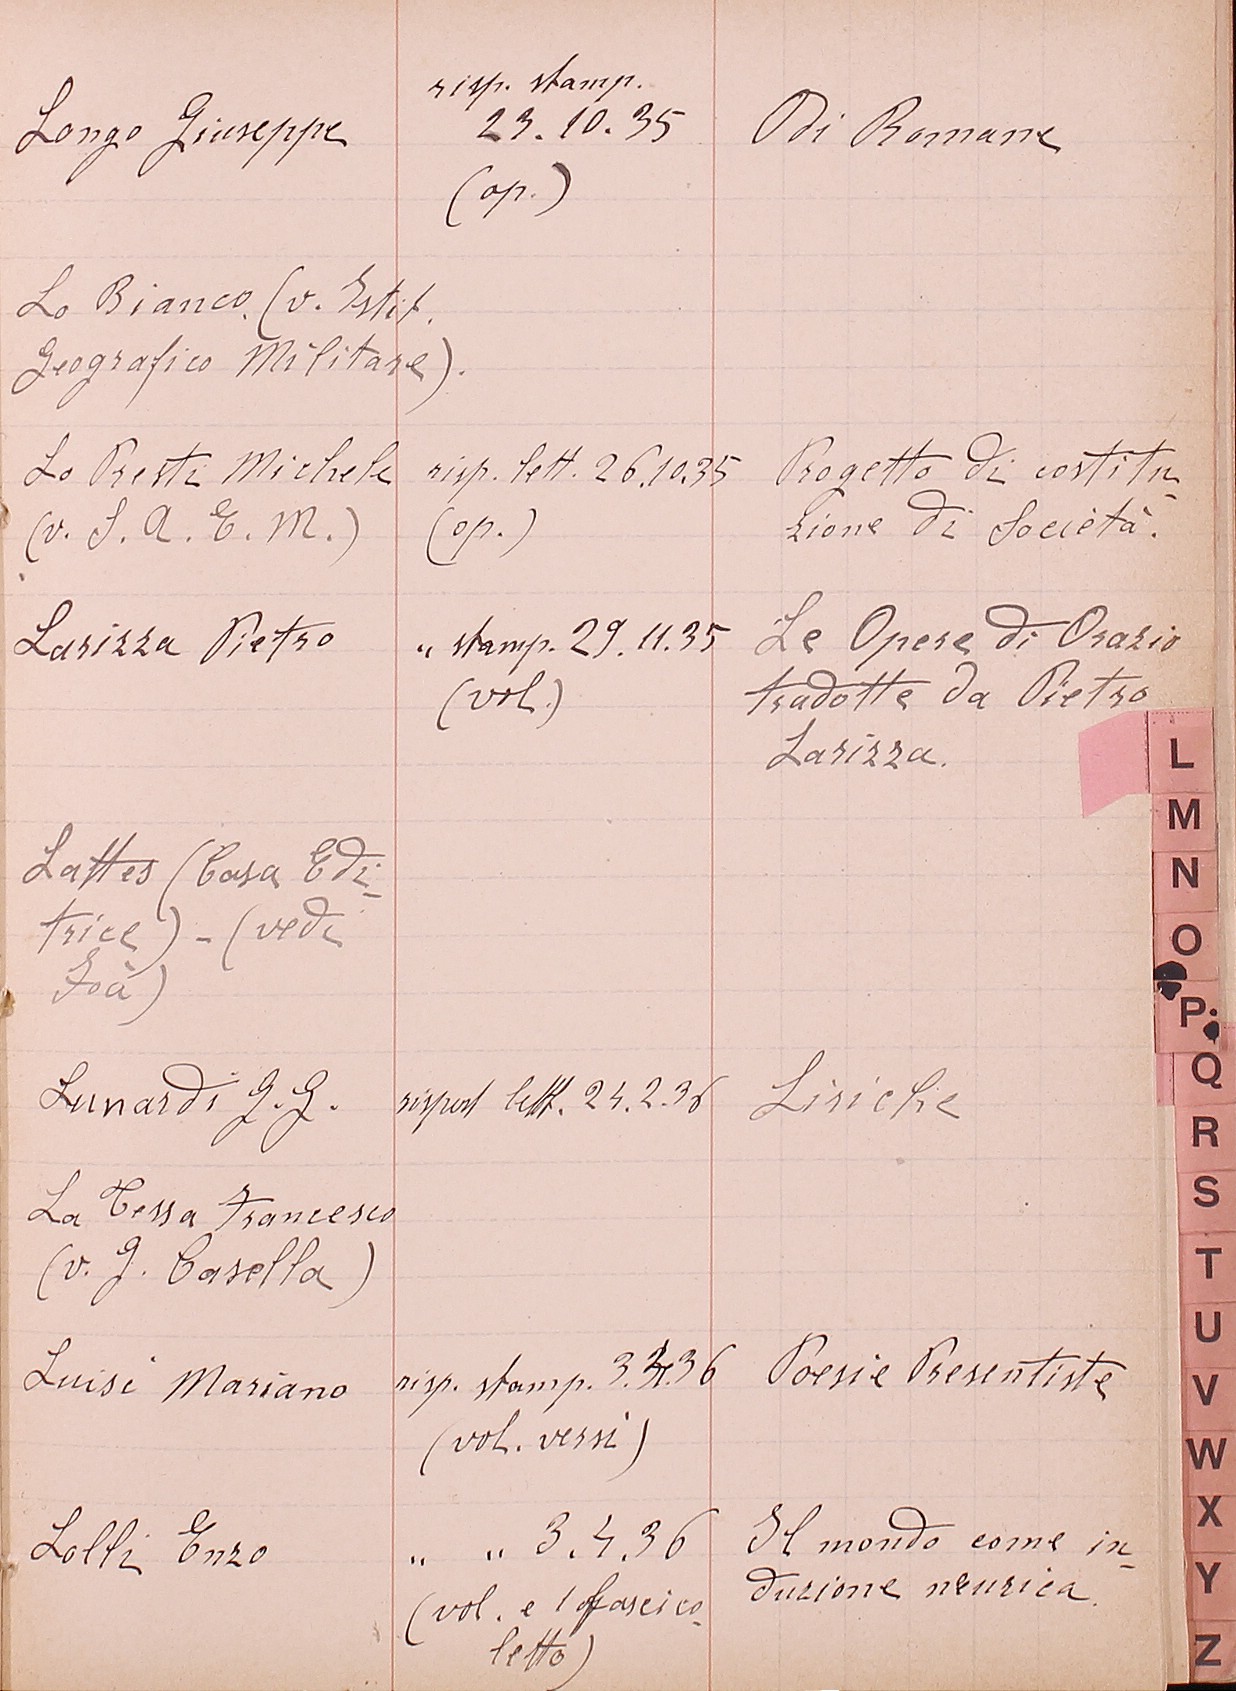 risp. stamp.
Longo Giuseppe 23.10.35 Odi Romane
(op.)
Lo Bianco. (v. Istit.
Geografico Militare).
Lo Presti Michele risp. lett. 26.10.35 Progetto di costitu-
(v. S. A. E. M.) (op.) zione di Società.
Larizza Pietro " stamp. 29.11.35 Le Opere di Orazio
(vol.) tradotte da Pietro
Larizza.
Lattes (Casa Edi-
trice) - (vedi
Zoà)
Lunardi G. G. rispost lett. 24.2.36 Liriche
La Cessa Francesco
(v. G. Casella)
Luisi Mariano risp. stamp. 3.4.36 Poesie Presentiste
(vol. versi)
Lolli Enzo " " 3.4.36 Il mondo come in-
(vol. e 1 fascico- duzione neurica.
letto)
L
M
N
O
P
Q
R
S
T
U
V
W
X
Y
Z